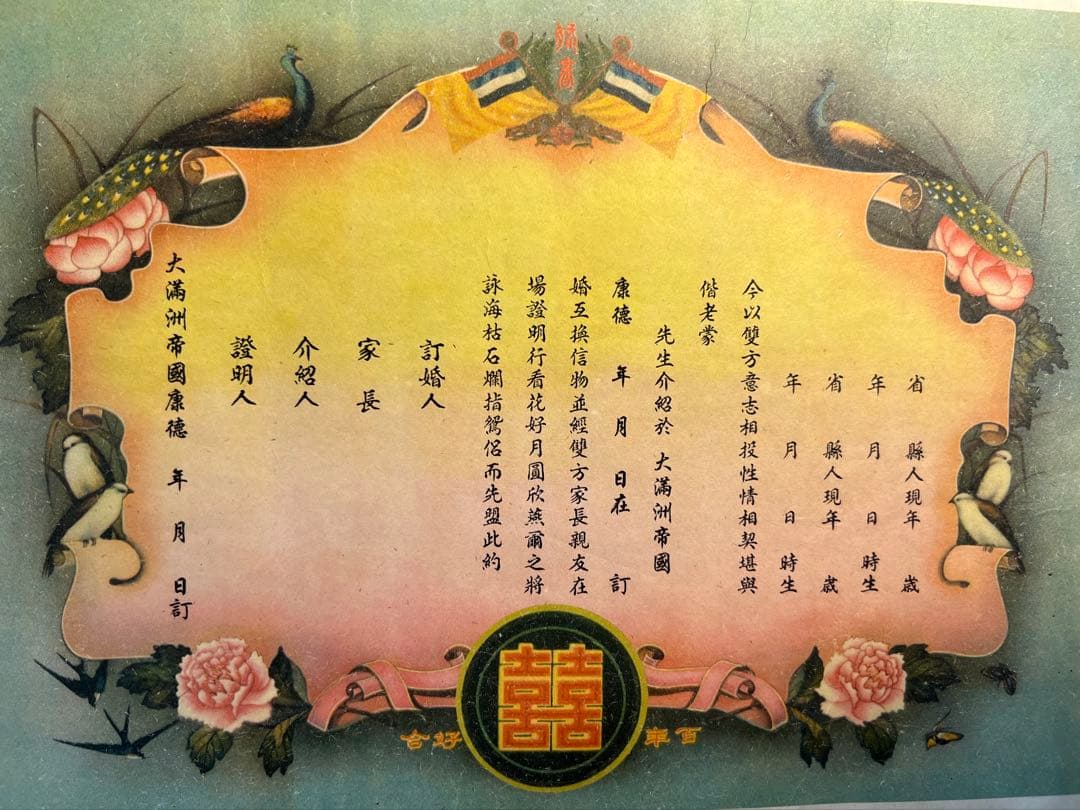 婚書
省 縣人現年 歲
年 月 日 時生
省 縣人現年 歲
年 月 日 時生
今以雙方意志相投性情相契堪與
偕老蒙
先生介紹於 大滿洲帝國
康德 年 月 日在 訂
婚互換信物並經雙方家長親友在
場證明行看花好月圓欣燕爾之將
詠海枯石爛指鴛侶而先盟此約
訂婚人
家長
介紹人
證明人
大滿洲帝國康德 年 月 日訂
囍
百年好合